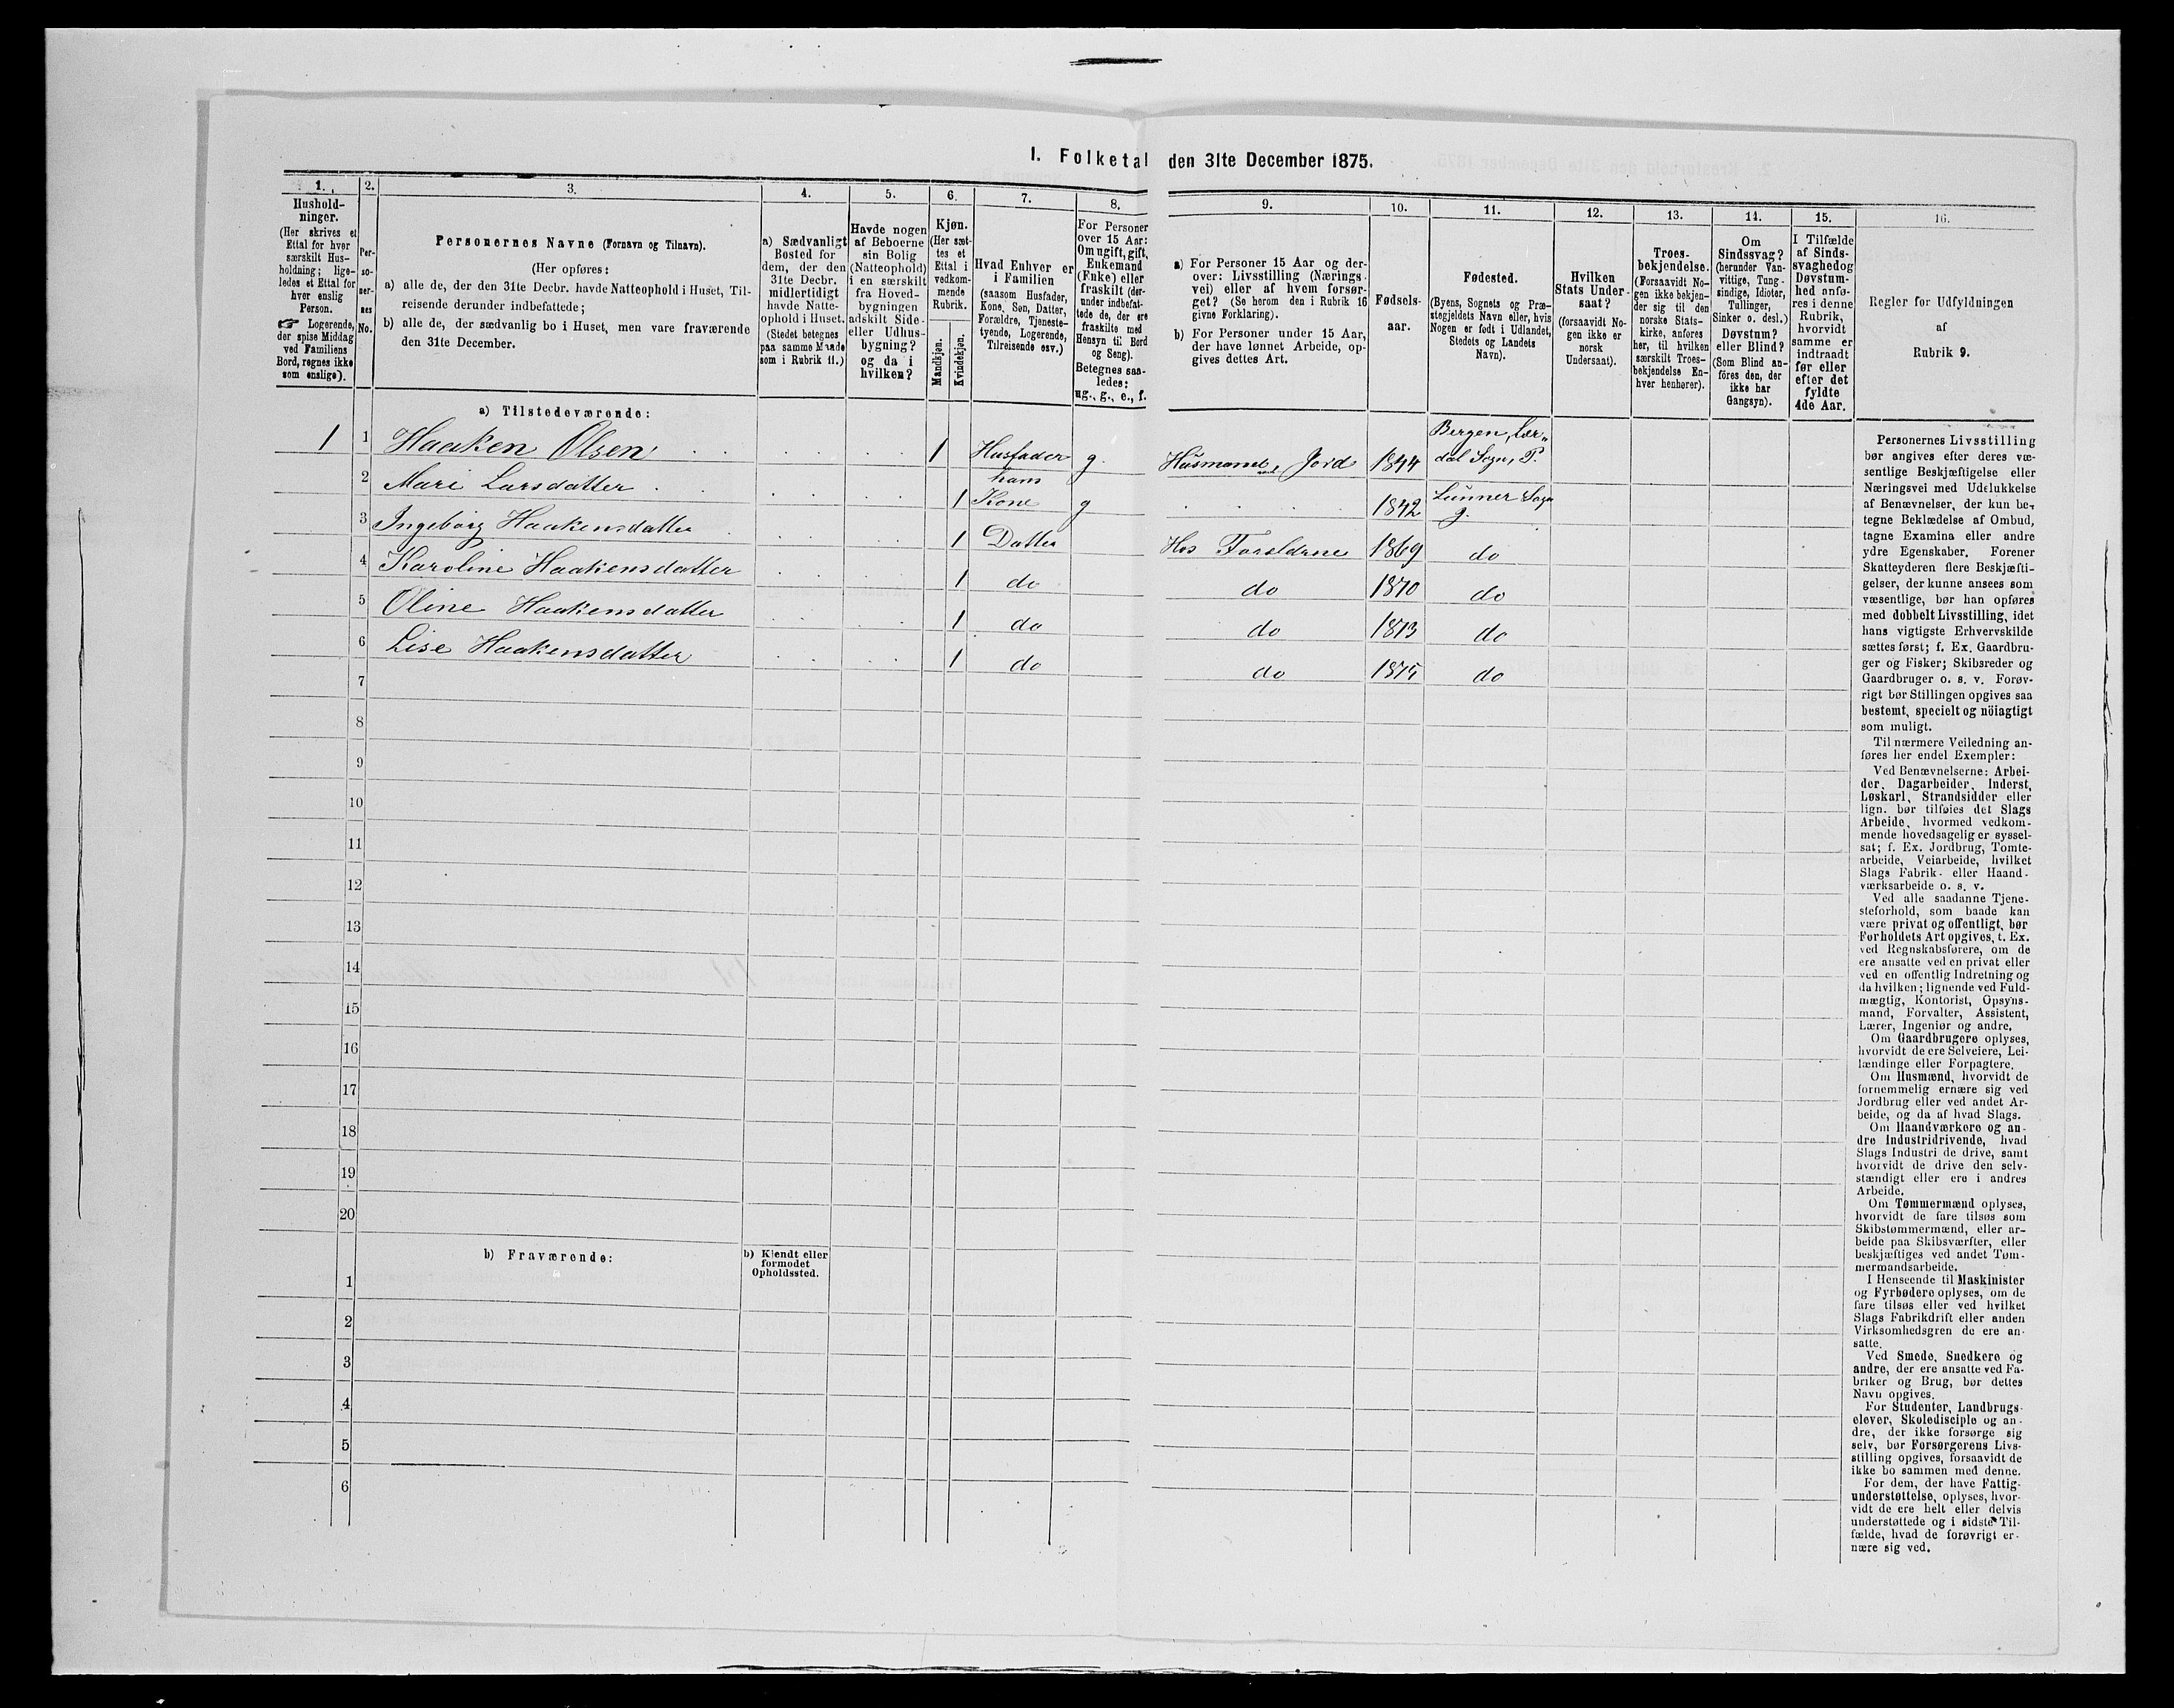 I. Folketal den 31te December 1875.
1. 2. 3. 4. 5. 6. 7. 8. 9. 10. 11. 12. 13. 14. 15. 16.
Hushold-
ninger.
(Her skrives et
Ettal for hver
særskilt Hus-
holdning; lige-
ledes et Ettal for
hver enslig
Person.
☞ Logerende,
der spise Middag
ved Familiens
Bord, regnes ikke
som enslige).
Per-
so-
ner-
nes
No.
Personernes Navne (Fornavn og Tilnavn).
(Her opføres:
a) alle de, der den 31te Decbr. havde Natteophold i Huset, Til-
reisende derunder indbefattede;
b) alle de, der sædvanlig bo i Huset, men vare fraværende
den 31te December.
a) Sædvanligt
Bosted for
dem, der den
31te Decbr.
midlertidigt
havde Natte-
ophold i Huset.
(Stedet betegnes
paa samme Maade
som i Rubrik 11.)
Havde nogen
af Beboerne
sin Bolig
(Natteophold)
i en særskilt
fra Hoved-
bygningen
adskilt Side-
eller Udhus-
bygning?
og da i
hvilken?
Kjøn.
(Her sæt-
tes et
Ettal i
vedkom-
mende
Rubrik.
Mandkjøn.
Kvindekjøn.
Hvad Enhver er
i Familien
(saasom Husfader,
Kone, Søn, Datter,
Forældre, Tjeneste-
tyende, Logerende,
Tilreisende osv.)
For Personer
over 15 Aar:
Om ugift, gift,
Enkemand
(Enke) eller
fraskilt (der-
under indbefat-
tede de, der ere
fraskilte med
Hensyn til Bord
og Seng).
Betegnes saa-
ledes:
ug., g., e., f.
a) For Personer 15 Aar og der-
over: Livsstilling (Nærings-
vei) eller af hvem forsør-
get? (Se herom den i Rubrik 16
givne Forklaring).
b) For Personer under 15 Aar,
der have lønnet Arbeide, op-
gives dettes Art.
Fødsels-
aar.
Fødested.
(Byens, Sognets og Præ-
stegjeldets Navn eller, hvis
Nogen er født i Udlandet,
Stedets og Landets
Navn).
Hvilken
Stats Under-
saat?
(forsaavidt No-
gen ikke er
norsk
Undersaat).
Troes-
bekjendelse.
(Forsaavidt No-
gen ikke bekjen-
der sig til den
norske Stats-
kirke, anføres
her, til hvilken
særskilt Troes-
bekjendelse En-
hver henhører).
Om
Sindssvag?
(herunder Van-
vittige, Tung-
sindige, Idioter,
Tullinger,
Sinker o. desl.)
Døvstum?
eller Blind?
(Som Blind an-
føres den, der
ikke har
Gangsyn).
I Tilfælde
af Sinds-
svaghed og
Døvstum-
hed anfø-
res i denne
Rubrik,
hvorvidt
samme er
indtraadt
før eller
efter det
fyldte
4de Aar.
Regler for Udfyldningen
af
Rubrik 9.
a) Tilstedeværende:
1 1 Haaken Olsen 1 Husfader g. Husmand, Jord 1844 Bergen, Lær-
dal Sogn, P.
2 Mari Larsdatter 1 hans
Kone g 1842 Lunner Sogn
3 Ingeborg Haakensdatter 1 Datter Hos Forældrene 1869 do
4 Karoline Haakensdatter 1 do do 1870 do
5 Oline Haakensdatter 1 do do 1873 do
6 Lise Haakensdatter 1 do do 1875 do
7
8
9
10
11
12
13
14
15
16
17
18
19
20
b) Fraværende:
b) Kjendt eller
formodet
Opholdssted.
1
2
3
4
5
6
Personernes Livsstilling
bør angives efter deres væ-
sentlige Beskjæftigelse eller
Næringsvei med Udelukkelse
af Benævnelser, der kun be-
tegne Beklædelse af Ombud,
tagne Examina eller andre
ydre Egenskaber. Forener
Skatteyderen flere Beskjæfti-
gelser, der kunne ansees som
væsentlige, bør han opføres
med dobbelt Livsstilling, idet
hans vigtigste Erhvervskilde
sættes først; f. Ex. Gaardbru-
ger og Fisker; Skibsreder og
Gaardbruger o. s. v. Forøv-
rigt bør Stillingen opgives saa
bestemt, specielt og nöiagtigt
som muligt.
Til nærmere Veiledning an-
føres her endel Exempler:
Ved Benævnelserne: Arbei-
der, Dagarbeider, Inderst,
Løskarl, Strandsidder eller
lign. bør tilføies det Slags
Arbeide, hvormed vedkom-
mende hovedsagelig er syssel-
sat; f. Ex. Jordbrug, Tomte-
arbeide, Veiarbeide, hvilket
Slags Fabrik- eller Haand-
værksarbeide o. s. v.
Ved alle saadanne Tjene-
steforhold, som baade kan
være privat og offentligt, bør
Forholdets Art opgives, t. Ex.
ved Regnskabsførere, om de
ere ansatte ved en privat eller
ved en offentlig Indretning og
da hvilken; lignende ved Fuld-
mægtig, Kontorist, Opsyns-
mand, Forvalter, Assistent,
Lærer, Ingeniør og andre.
Om Gaardbrugere oplyses,
hvorvidt de ere Selveiere, Lei-
lændinge eller Forpagtere.
Om Husmænd, hvorvidt de
fornemmelig ernære sig ved
Jordbrug eller ved andet Ar-
beide, og da af hvad Slags.
Om Haandværkere og an-
dre Industridrivende, hvad
Slags Industri de drive, samt
hvorvidt de drive den selv-
stændigt eller ere i andres
Arbeide.
Om Tømmermænd oplyses,
hvorvidt de fare tilsøs som
Skibstømmermænd, eller ar-
beide paa Skibsværfter, eller
beskjæftiges ved andet Tøm-
mermandsarbeide.
I Henseende til Maskinister
og Fyrbødere oplyses, om de
fare tilsøs eller ved hvilket
Slags Fabrikdrift eller anden
Virksomhedsgren de ere an-
satte.
Ved Smede, Snedkere og
andre, der ere ansatte ved Fa-
briker og Brug, bør dettes
Navn opgives.
For Studenter, Landbrugs-
elever, Skoledisciple og an-
dre, der ikke forsørge sig
selv, bør Forsørgerens Livs-
stilling opgives, forsaavidt de
ikke bo sammen med denne.
For dem, der have Fattig-
understøttelse, oplyses, hvor-
vidt de ere helt eller delvis
understøttede og i sidste Til-
fælde, hvad de forøvrigt er-
nære sig ved.